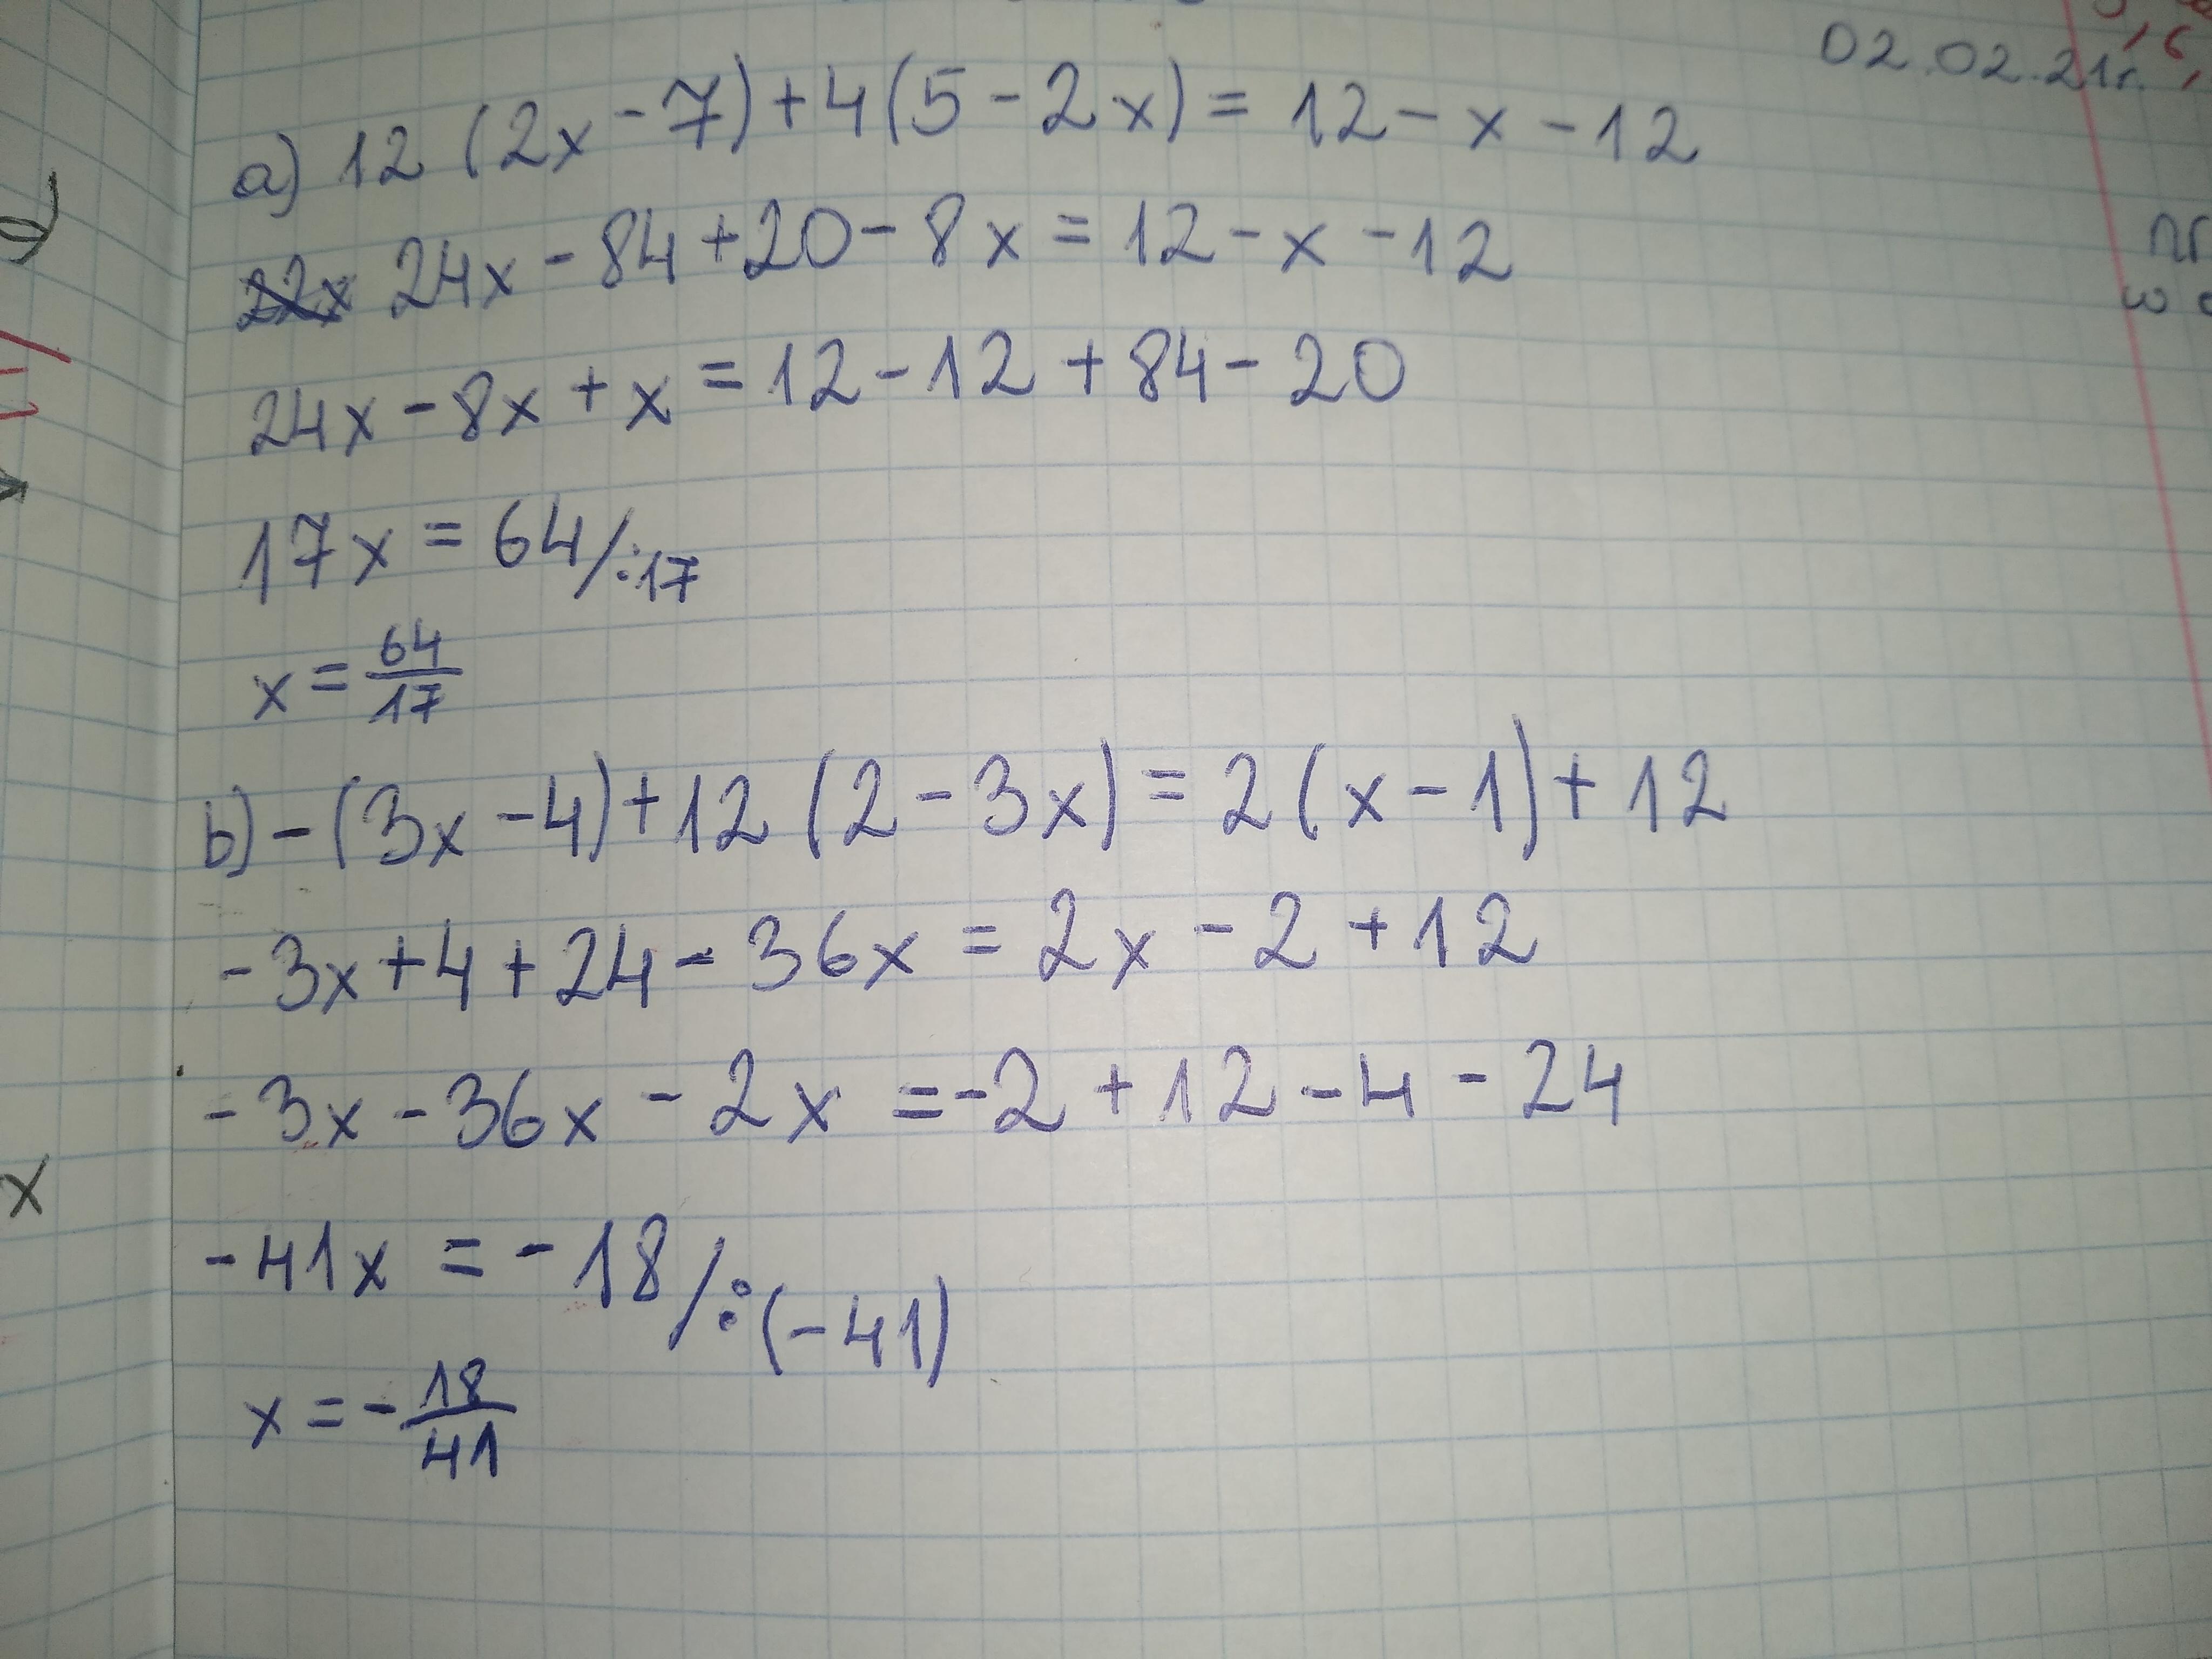 02.02.21r.
a) 12 (2x - 7) + 4 (5 - 2x) = 12 - x - 12
24x - 84 + 20 - 8x = 12 - x - 12
24x - 8x + x = 12 - 12 + 84 - 20
17x = 64 /:17
x = 64/17
b) - (3x - 4) + 12 (2 - 3x) = 2 (x - 1) + 12
- 3x + 4 + 24 - 36x = 2x - 2 + 12
- 3x - 36x - 2x = -2 + 12 - 4 - 24
- 41x = - 18 /:(-41)
x = - 18/41
nr
w
x